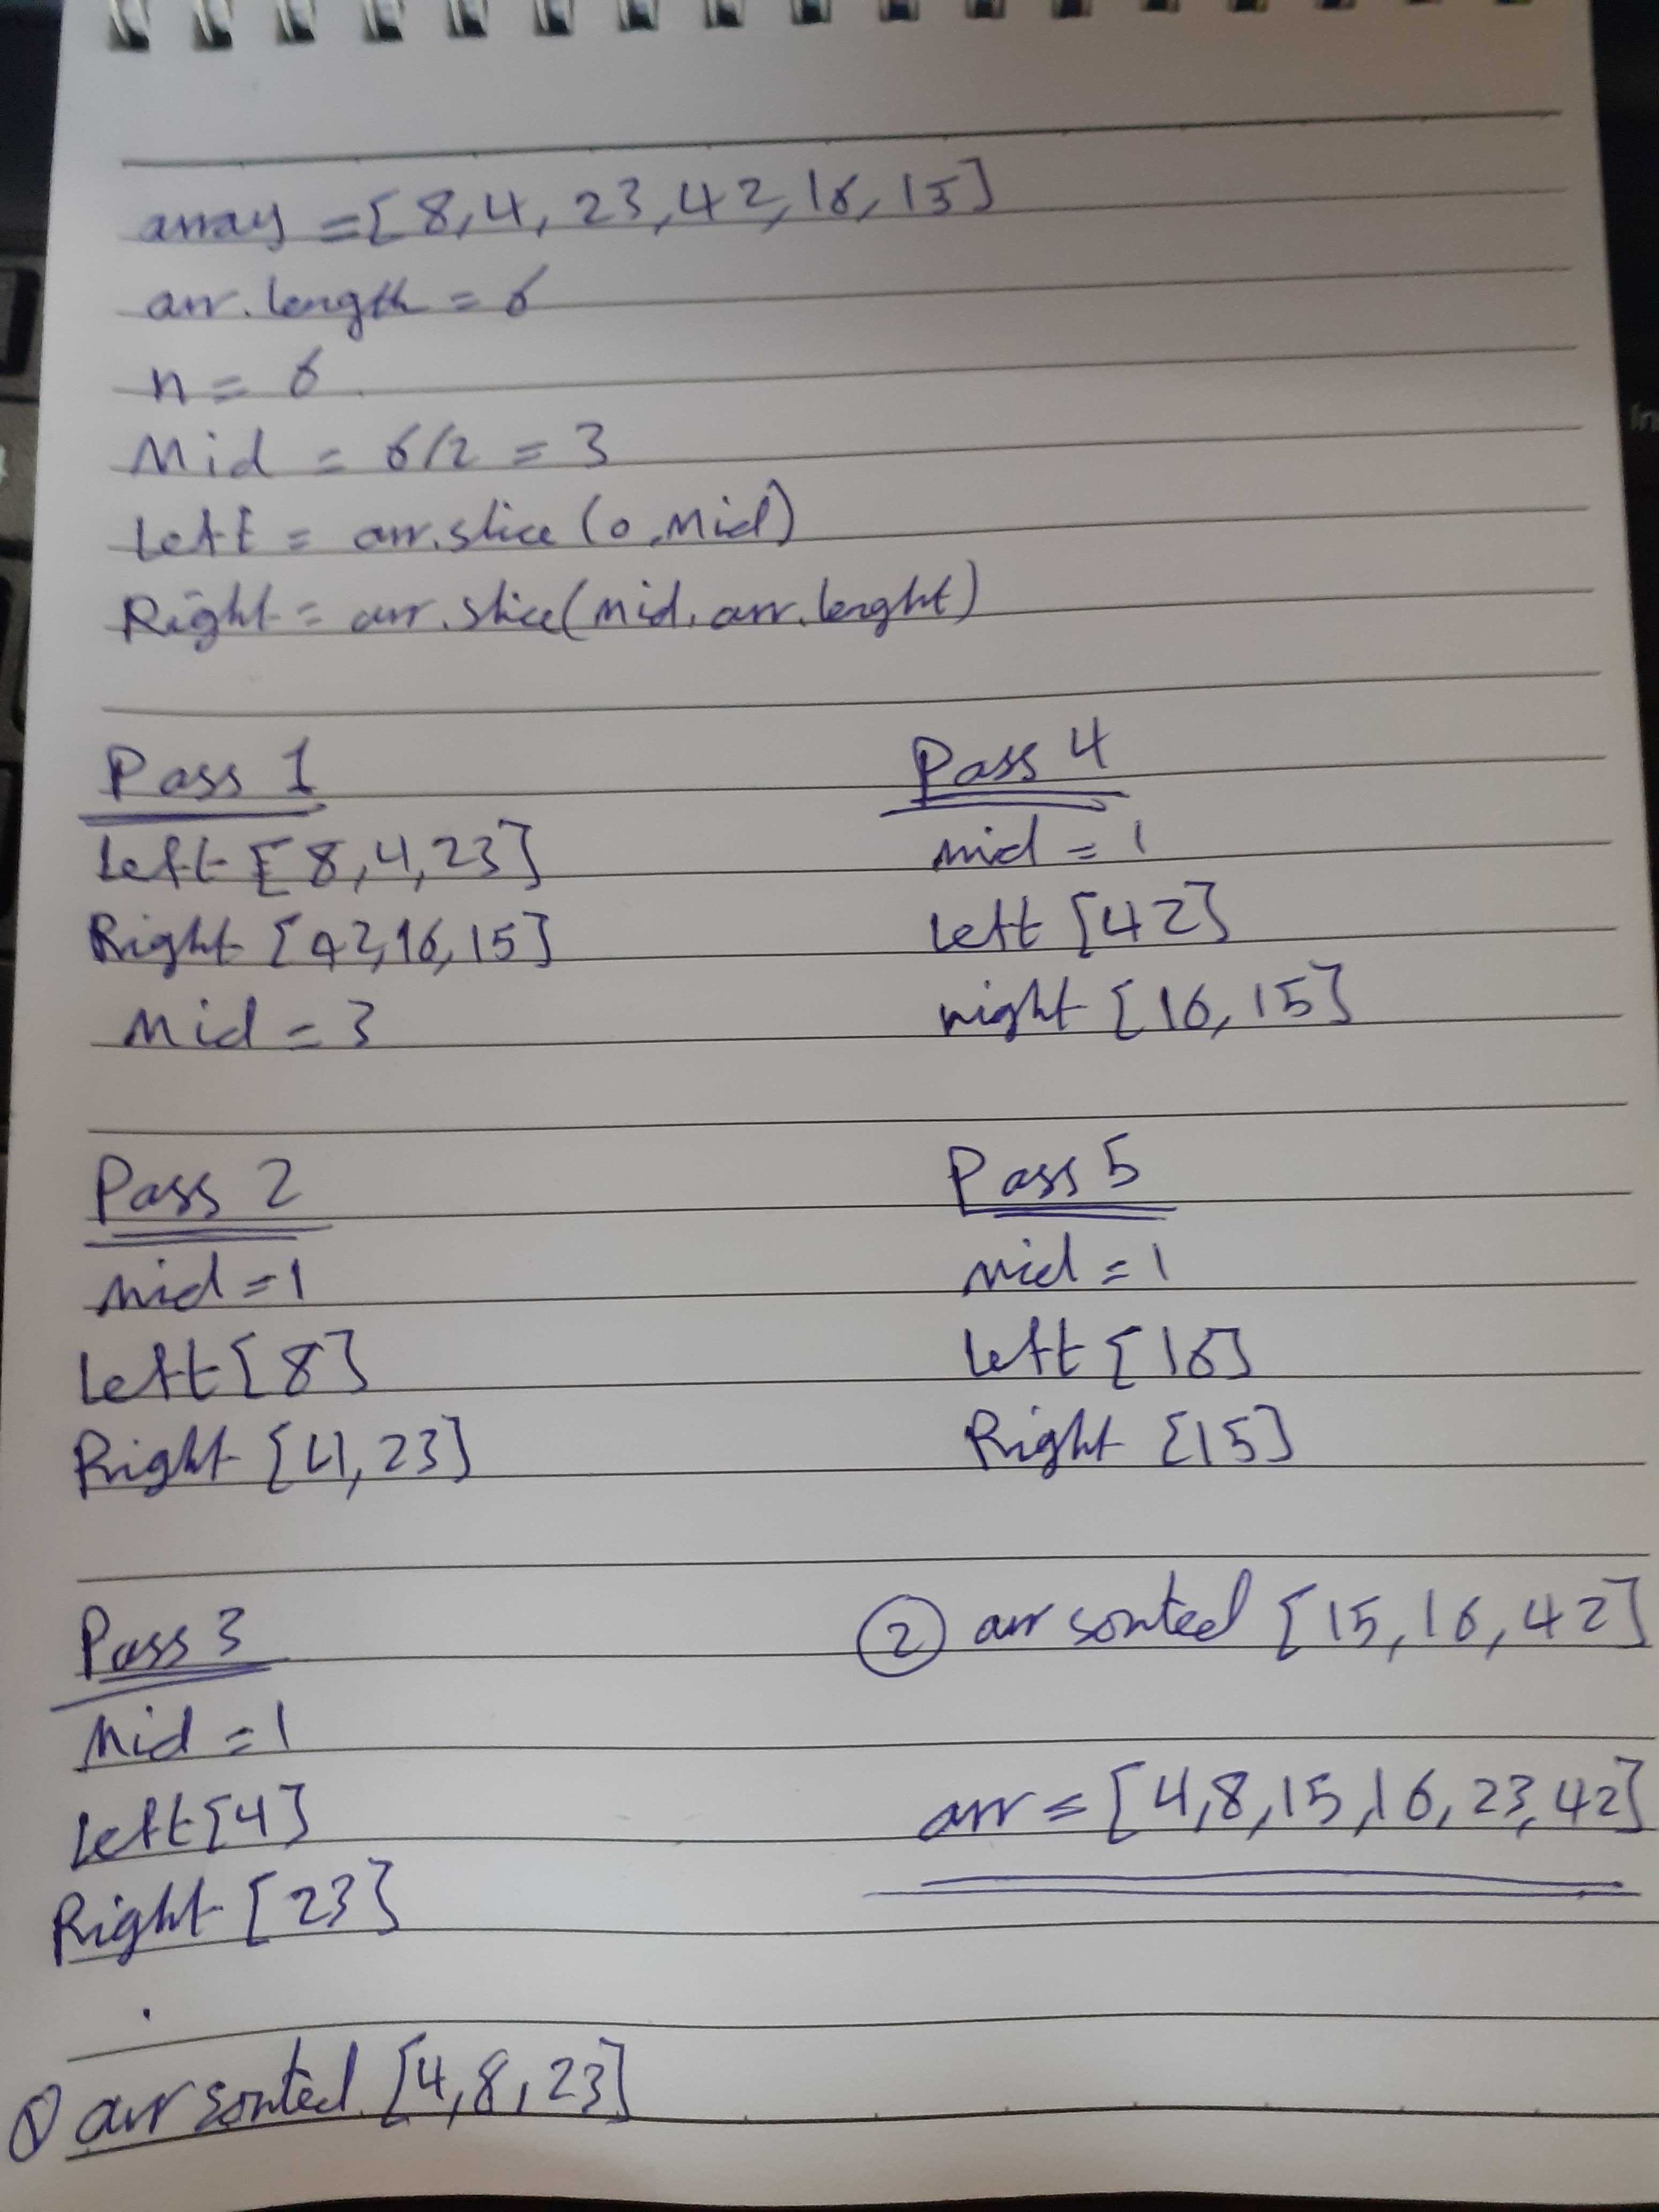 array = [8,4, 23,42,16,15]
arr.length = 6
n = 6
Mid = 6/2 = 3
Left = arr.slice (0,Mid)
Right = arr.slice(Mid, arr.lenght)
Pass 1
Left [8,4,23]
Right [42,16,15]
Mid = 3
Pass 2
Mid =1
Left [8]
Right [4,23]
Pass 3
Mid =1
Left [4]
Right [23]
① arr sorted [4,8,23]
Pass 4
mid = 1
left [42]
right [16,15]
Pass 5
mid = 1
left [16]
Right [15]
② arr sorted [15,16,42]
arr = [4,8,15,16,23,42]